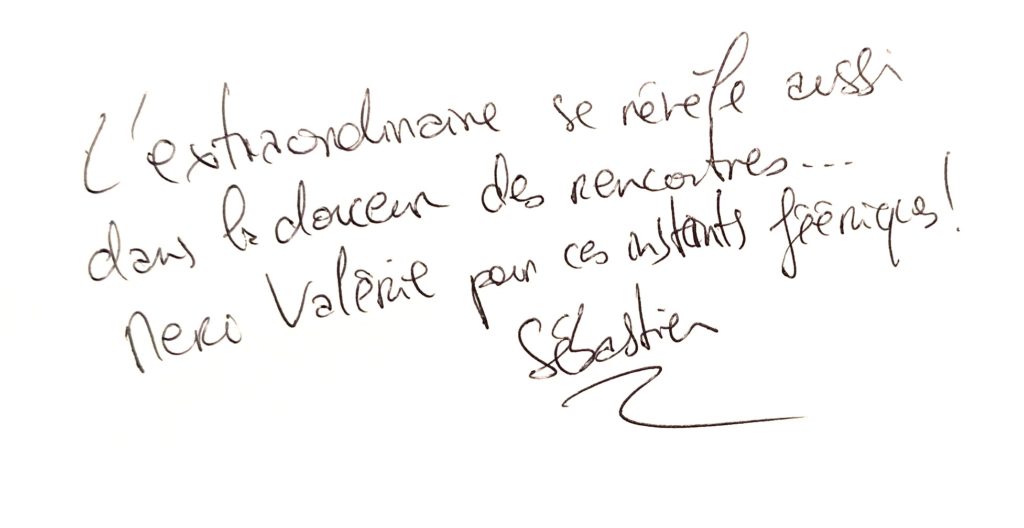 L'extraordinaire se révèle aussi
dans la douceur des rencontres...
Merci Valérie pour ces instants féériques!
Sébastien